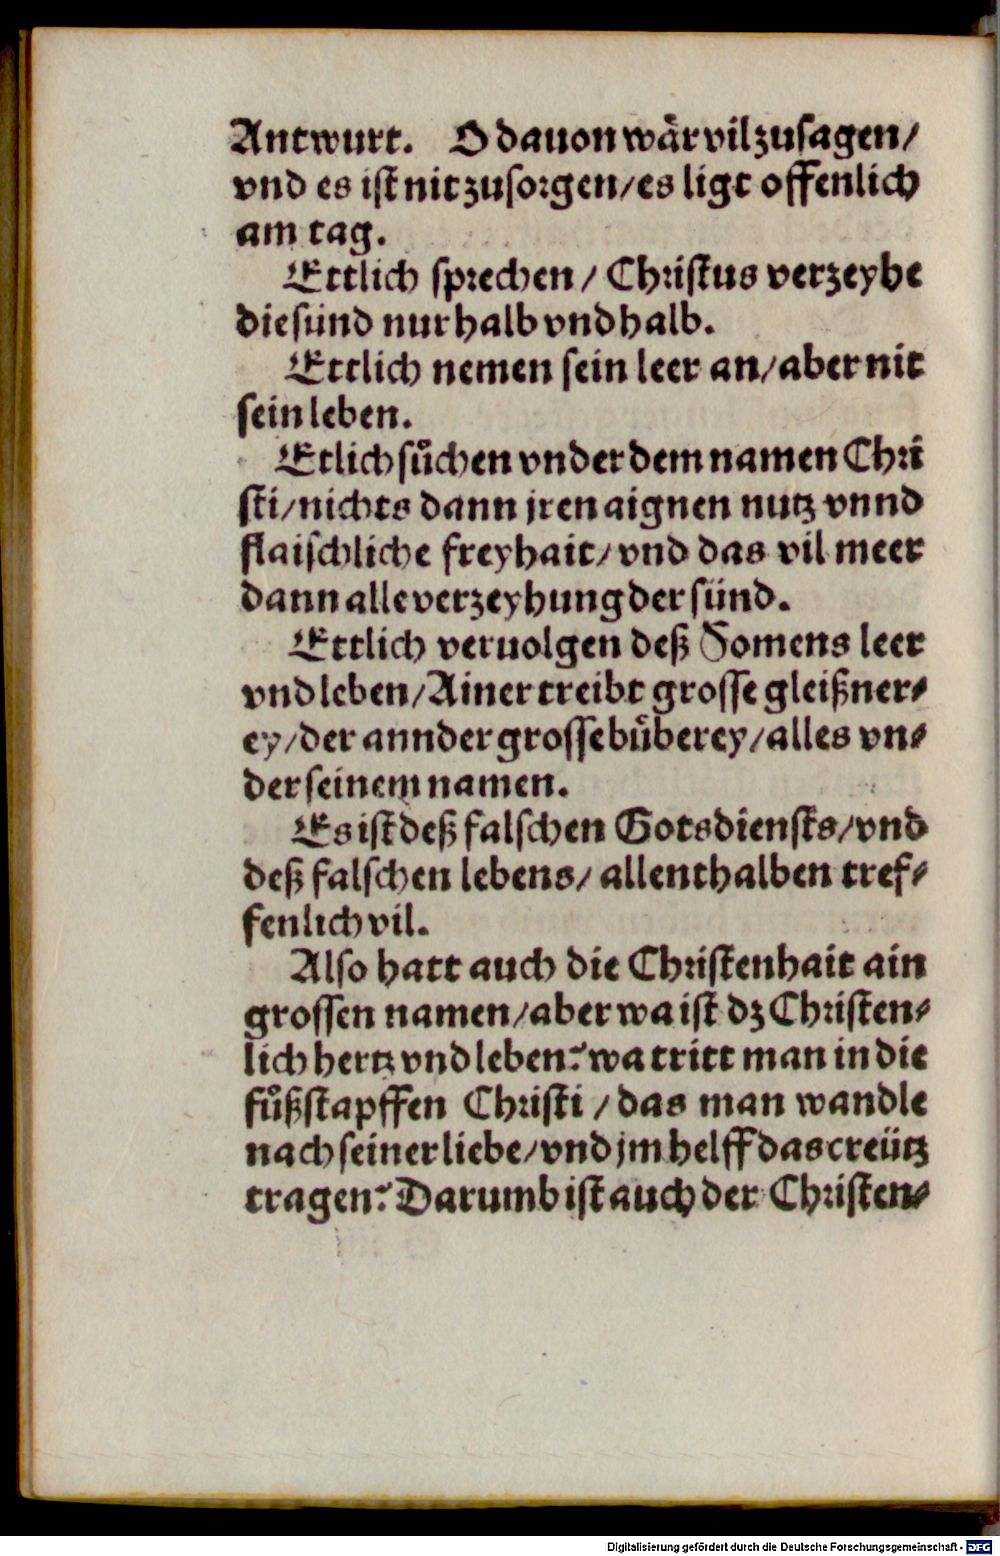 Antwurt. O dauon wår vil zusagen/
vnd es ist nit zusorgen/es ligt offenlich
am tag.
Ettlich sprechen/ Christus verzeyhe
die sünd nur halb vnd halb.
Ettlich nemen sein leer an/aber nit
sein leben.
Etlich sůchen vnder dem namen Chri
sti/nichts dann jren aignen nutz vnnd
flaischliche freyhait/vnd das vil meer
dann alle verzeyhung der sünd.
Ettlich veruolgen deß Fomens leer
vnd leben/Ainer treibt grosse gleißner⸗
ey/der annder grosse bůberey/alles vn⸗
der seinem namen.
Es ist deß falschen Gotsdiensts/vnd
deß falschen lebens/allenthalben tref⸗
fenlich vil.
Also hatt auch die Christenhait ain
grossen namen/aber wa ist dz Christen⸗
lich hertz vnd leben? wa tritt man in die
fůßstapffen Christi/das man wandle
nach seiner liebe/vnd jm helff das creütz
tragen? Darumb ist auch der Christen⸗
Digitalisierung gefördert durch die Deutsche Forschungsgemeinschaft - DFG